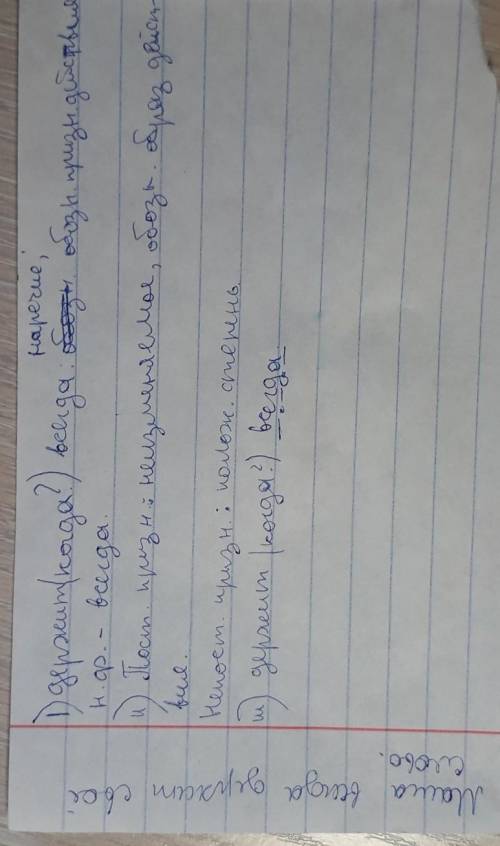 наречие;
I) держит (когда?) всегда: обозн. обозн. призн. действия
н.ф. - всегда.
II) Пост. призн.: неизменяемое, обозн. образ дейст-
вия.
Непост. призн.: полож. степень
III) держит (когда?) всегда
Маша всегда держит своё
слово.